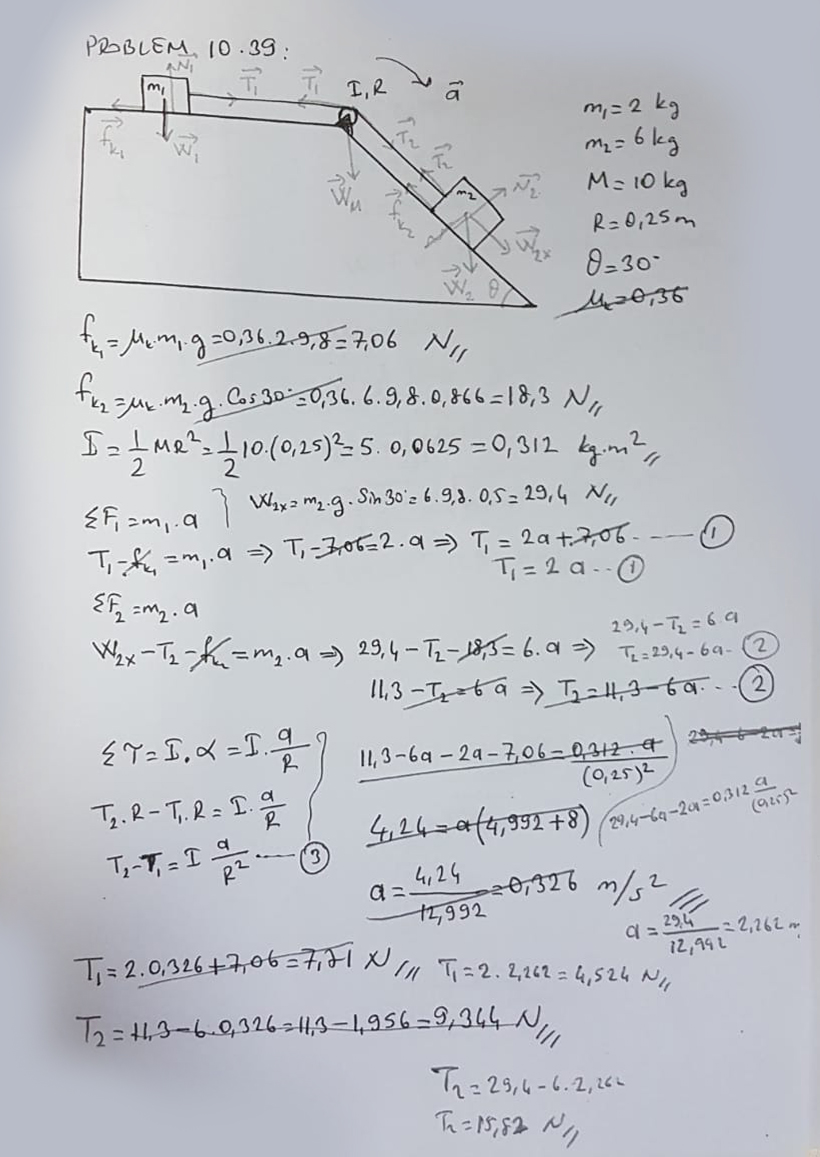 PROBLEM 10.39:
N₁ m₁ T₁ T₁ I,R a
f_k₁ W₁ T₂ T₂
W_M f_k₂ m₂ N₂
W₂ₓ W₂ θ
m₁=2 kg
m₂=6 kg
M=10 kg
R=0,25m
θ=30°
μₖ=0,36
f_k₁=μₖ.m₁.g=0,36.2.9,8=7,06 N//
f_k₂=μₖ.m₂.g.Cos30°=0,36.6.9,8.0,866=18,3 N//
I=1/2 MR²=1/2 10.(0,25)²=5.0,0625=0,312 kg.m²//
ΣF₁=m₁.a } W₂ₓ=m₂.g.Sin30°=6.9,8.0,5=29,4 N//
T₁-f_k₁=m₁.a ⇒ T₁-7,06=2.a ⇒ T₁=2a+7,06 ---- ①
T₁=2a..①
ΣF₂=m₂.a
29,4-T₂=6.a
W₂ₓ-T₂-f_k₂=m₂.a ⇒ 29,4-T₂-18,3=6.a ⇒ T₂=29,4-6a- ②
11,3-T₂=6a ⇒ T₂=11,3-6a... ②
Στ=I.α=I.a/R
T₂.R-T₁.R=I.a/R
T₂-T₁=I a/R² ---- ③
11,3-6a-2a-7,06=0,312.a/(0,25)²
4,24=a(4,992+8)
29,4-6a-2a=0,312 a/(0,25)²
a=4,24/12,992=0,326 m/s²///
a=29,4/12,992=2,262 m
T₁=2.0,326+7,06=7,71 N/// T₁=2.2,262=4,524 N//
T₂=11,3-6.0,326=11,3-1,956=9,344 N///
T₂=29,4-6.2,262
T₂=15,82 N//